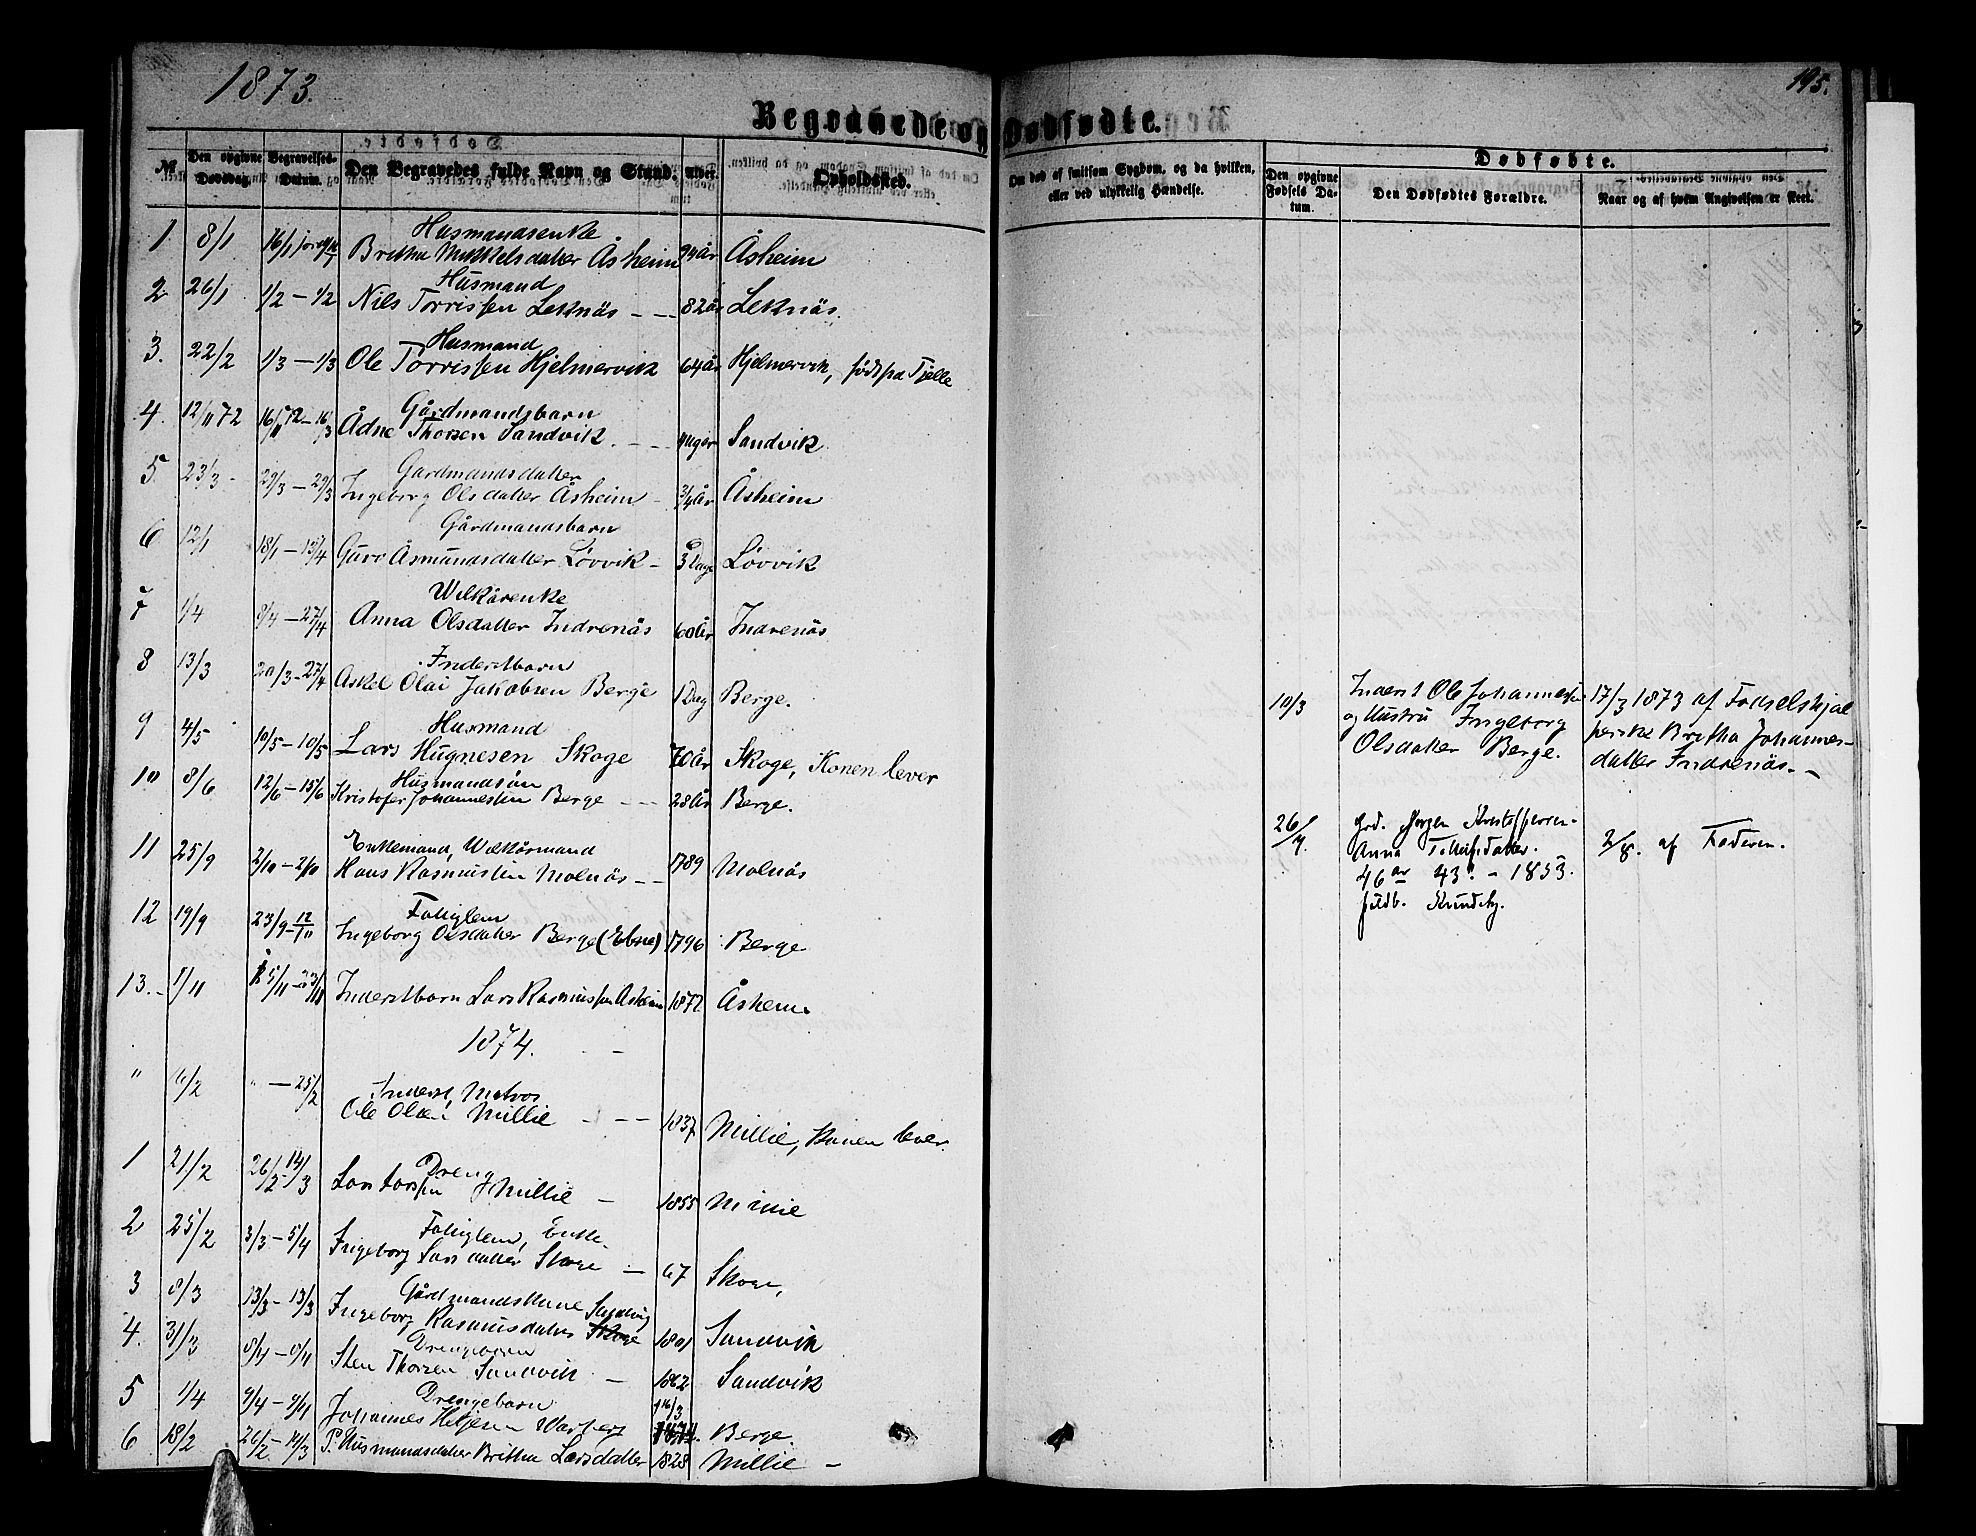 1873.
195.
Begravede og Dødfødte.
No
Den opgivne Dødsdag.
Begravelses-Datum.
Den Begravedes fulde Navn og Stand.
Alder.
Opholdssted.
Om død af smitsom Sygdom, og da hvilken, eller ved ulykkelig Hændelse.
Dødfødte.
Den opgivne Fødsels Datum.
Den Dødfødtes Forældre.
Naar og af hvem Angivelsen er skeet.
Husmandsenke
1. 8/1 16/1 Britha Mikkelsdatter Åsheim 94 år Åsheim
Husmand
2. 26/1 1/2 – 1/2 Nils Torrissen Leknäs 82 år Leknäs.
Husmand
3. 22/2 1/3 – 1/3 Ole Torrissen Hjelmervik 64 år Hjelmervik, født på Tjelle
Gårdmandsbarn
4. 12/11 72 16/11 72 – 16/3 Ådne Thorsen Sandvik. 4 uger Sandvik
Gårdmandsdatter
5. 23/3 29/3 – 29/3 Ingeborg Olsdatter Åsheim 3/4 år Åsheim
Gårdmandsbarn
6 12/1 18/1 – 13/4 Guro Åsmundsdatter Løvvik 3 Dage Løvvik
Wilkårenke
7 1/4 8/4 – 27/4 Anna Olsdatter Indrenäs 60 år Indrenäs
Inderstbarn
8 13/3 20/3 – 27/4 Askel Olai Jakobsen Berge 1 Dag Berge.
Husmand
9 4/5 10/5 – 10/5 Lars Hugnesen Skoge 70 år Skoge, Konen lever
Husmandsøn
10 8/6 12/6 – 15/6 Kristofer Johannessen Berge 28 år Berge.
Enkemand, Wilkårmand
11 25/9 2/10 – 2/10 Hans Rasmussen Molnäs 1789 Molnäs
Fattiglem
12 19/9 23/9 – 12/10 Ingeborg Olsdatter Berge (Ebne) 1796 Berge
13. 1/11 15/11 – 23/11 Inderstbarn Lars Rasmussen Åsheim 1872 Åsheim
1874.
Inderst, Matros
" 6/2 " – 25/2 Ole Olsen Millie 1837 Millie, Konen lever.
Dreng
1 21/2 26/2 14/3 Lars Larssen Millie 1855 Millie
Fattiglem, Enke
2 25/2 3/3 – 5/4 Ingeborg Larsdatter Skoge 67 Skoge,
Gårdmandskone Sandvig
3 8/3 13/3 – 13/3 Ingeborg Rasmusdatter Skoge 1801 Sandvik
Drengebarn
4. 31/3 8/4 – 8/4 Sten Thorsen Sandvik 1862 Sandvik
Drengebarn
5 1/4 9/4 – 9/4 Johannes 16/3 Berge.
6 18/2 26/2 – 14/3 P. Husmandsdatter Britha Larsdatter 1828 Millie –
10/3 Inderst Ole Johannessen
og Hustru Ingeborg
Olsdatter Berge.
17/3 1873 af Fødselshjæl
perske Britha Johannes-
datter Indrenäs. –
26/7. Grd. Jørgen Kristoffersen.
Anna datter.
46 år 43. – 1853.
fuldb.
2/8. af Faderen.